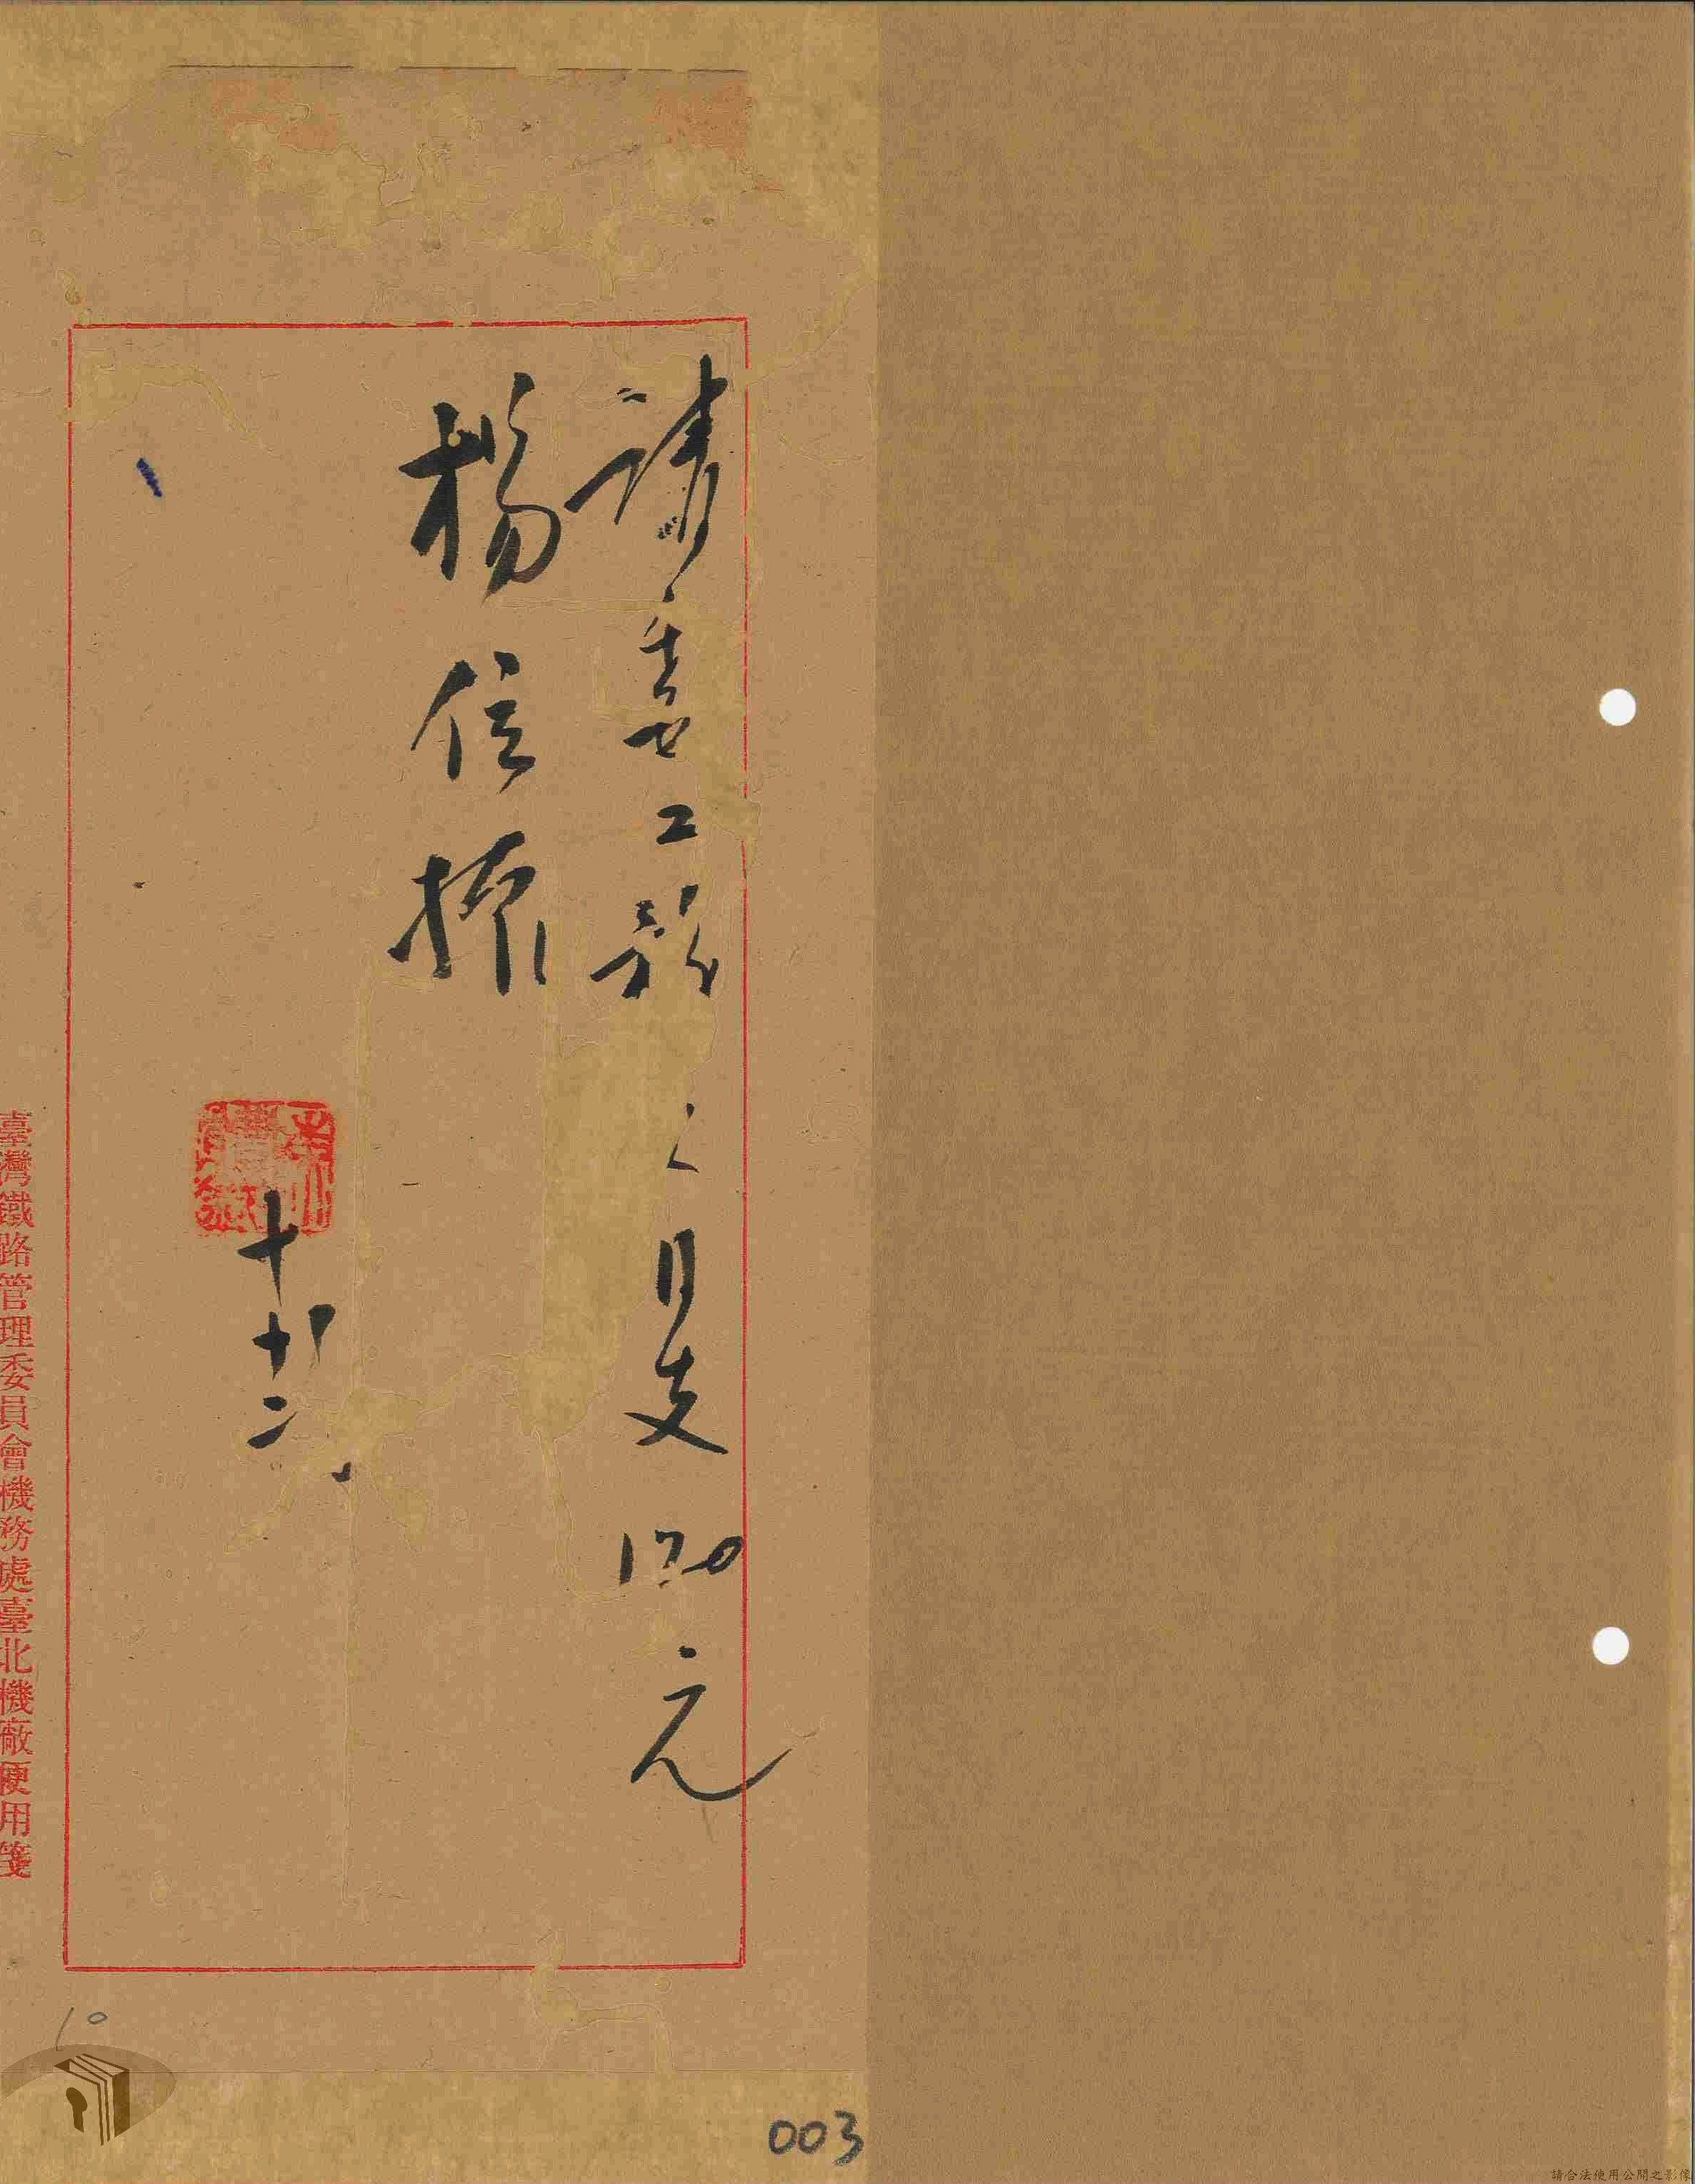 請委工務
之月支120元
楊信振
十
十八
二
臺灣鐵路管理委員會機務處臺北機廠便用箋
10
003
請合法使用公開之影像